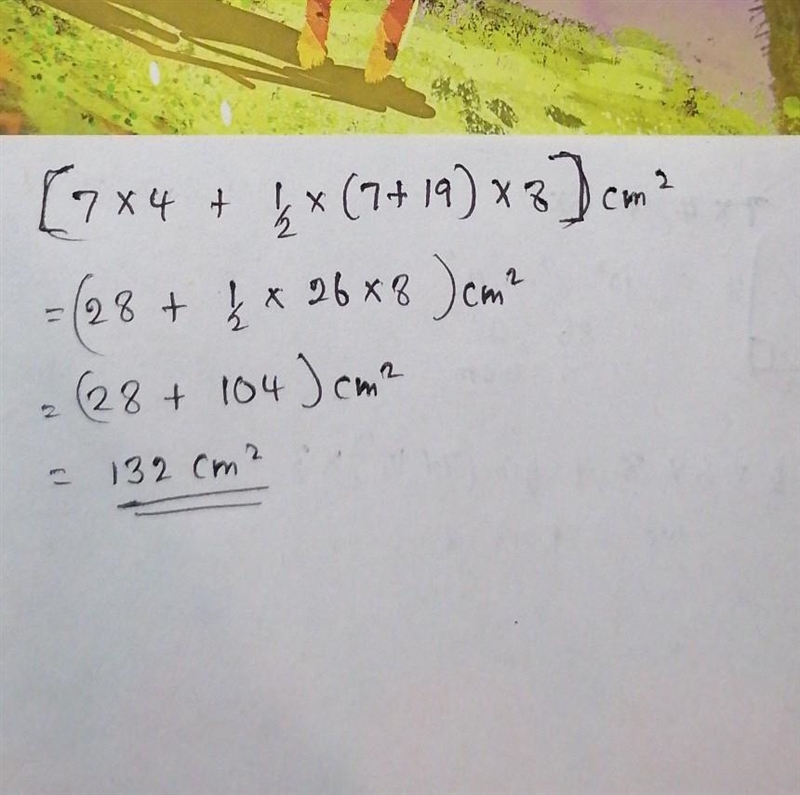 [7 × 4 + 1/2 × (7 + 19) × 8] cm²
= (28 + 1/2 × 26 × 8) cm²
= (28 + 104) cm²
= 132 cm²